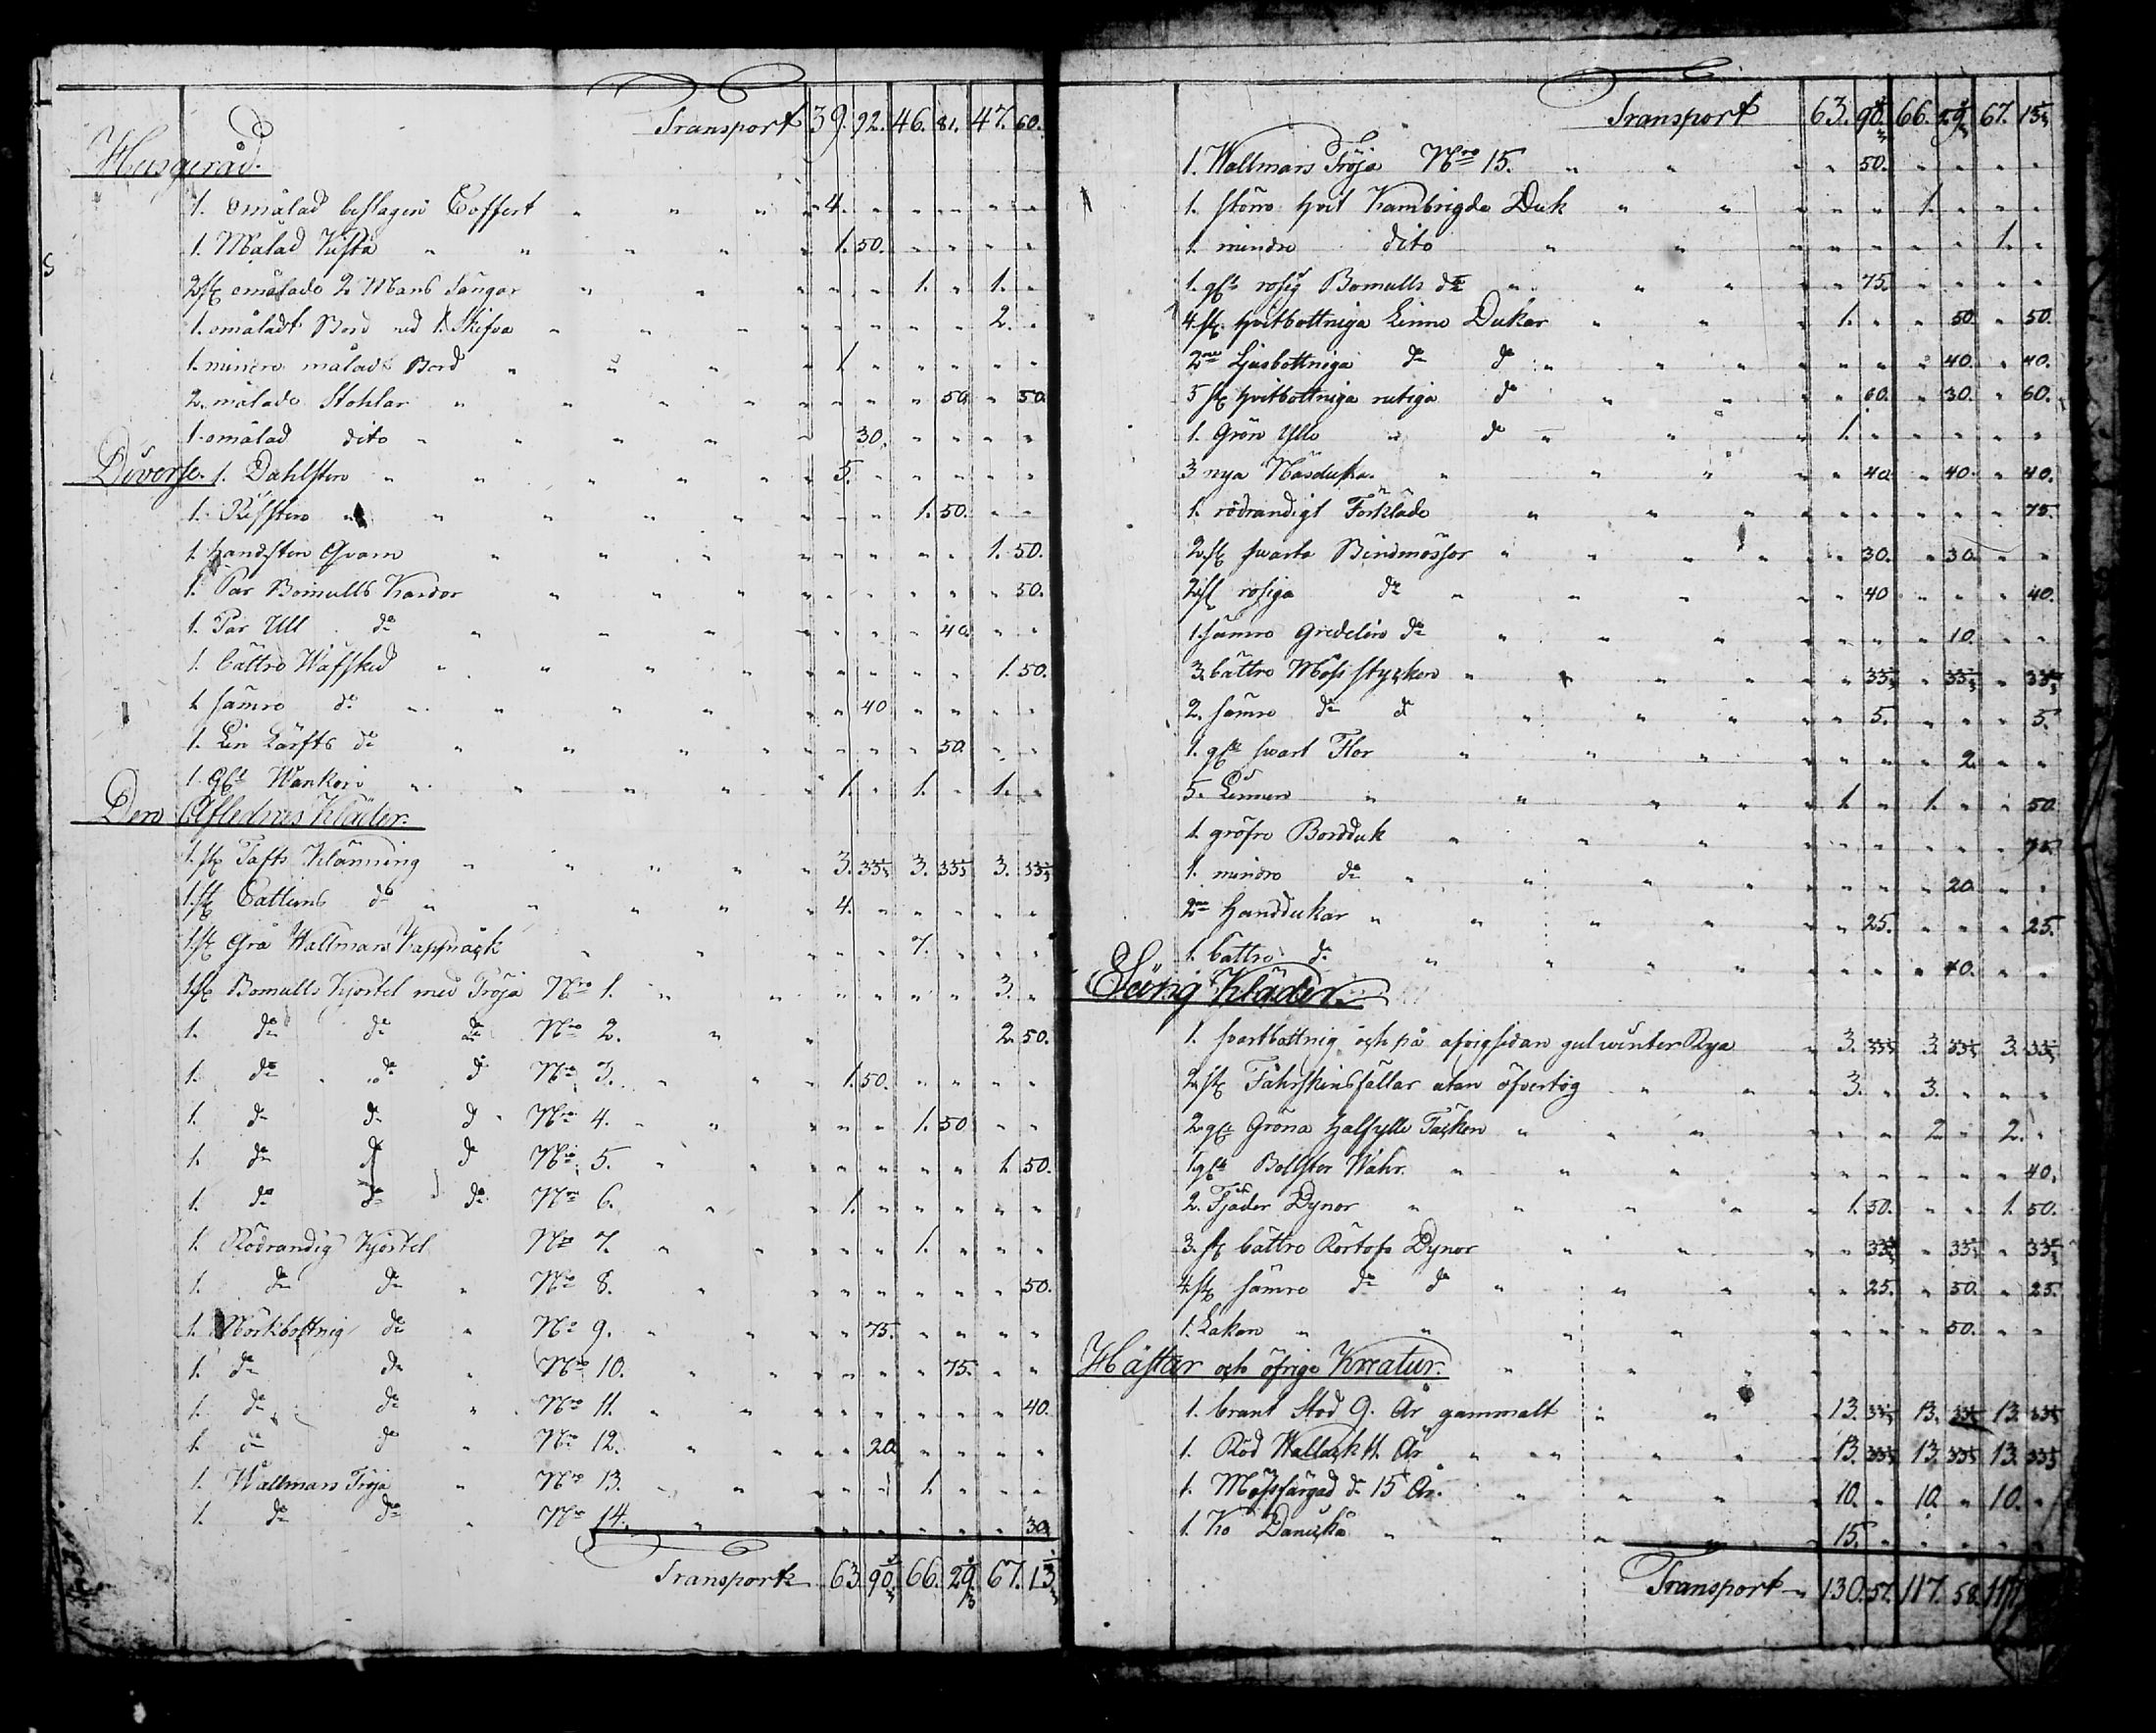 Transport 39. 92. 46. 81. 47. 60.
Husgeråd.
1. omålad beslagen Coffert " " " " 4. " " " " "
1. Målad Kista " " " " " 1. 50. " " " "
2 st omålade 2 Mans Sängar " " " " " 1. " 1. "
1. omåladt Bord med 1. Skifva " " " " " " " 2. "
1. mindre måladt Bord " " " " 1. " " " " "
2. målade Stohlar " " " " " " " 50. " 50.
1. omålad dito " " " " 30. " " " "
Diverse. 1. Dahlsten " " " " " 5. " " " " "
1. " " " " " " " 1. 50. " "
1 Handsten Qvarn " " " " " " " 1. 50.
1. Par Bomulls Kardor " " " " " " " " 50.
1. Par Ull do " " " " " " 40. " "
1. bättre Wäfsked " " " " " " " " 1. 50.
1. sämre do " " " " " 40 " " " "
1. Lin Lärfts do " " " " " " " 50. " "
1. " " " " 1. " 1. " 1. "
Den Aflednes Kläder.
1. st Tafts Klänning " " " " " 3. 33 1/3 3. 33 1/3 3. 33 1/3
1. st Cattuns do " " " " " 4. " " " " "
1. st Grå Wallmans Kappråck " " " " 7. " " "
1. st Bomulls Kjortel med Tröja Nro 1. " " " " " " 3. "
1. do do do Nro 2. " " 2. 50.
1. do do do Nro 3. " " " 1. 50. " " " "
1. do do do Nro 4. " " " " " 1. 50 " "
1. do do do Nro 5. " " " " " " 1. 50.
1. do do do Nro 6. " " 1. " " " " "
1. Rödrandig Kjortel Nro 7. " " " " 1. " " "
1. do do " Nro 8. " " " " " " 50.
1. Mörkbottnig do " Nro 9. " " " " 75. " " " "
1. do do " Nro 10. " " " " " " 75. " "
1. do do " Nro 11. " " " " " " " " 40.
1. do do " Nro 12. " " " " 20. " " " "
1. Wallmans Tröja " Nro 13. " " " " 1. " " "
1. do do " Nro 14. " " " " " " " 30.
Transport 63. 90 2/3. 66. 29 1/3. 67. 13 1/3
Transport 63. 90 2/3. 66. 29 1/3. 67. 13 1/3
1. Wallmans Tröja Nro 15. " " " " 50. " " " "
1. större hvit Kambrigde Duk " " " " " 1. " " "
1. mindre dito " " " " " " " 1. "
1. rosig Bomulls do " " " " " 75. " " " "
4. st. hvitbottniga Linne Dukar " " " 1. " " 50 " 50.
2ne Ljusbottniga do do " " " " " " 40. " 40.
5 st hvitbottniga rutiga do " " " " 60. " 30. " 60.
1. Grön Ylle " do " " " 1. " " " " "
3 nya Näsdukar " " " " " 40. " 40. " 40.
1. rödrandigt Förkläde " " " " " " " " " 75.
2. st svarta Bindmössor " " " " " " 30. " 30. " "
2. st rosiga do " " " " " 40 " " " 40.
1. sämre Gredelin do " " " " " " " 10. " "
3. bättre Möss stycken " " " " " " 33 1/3 " 33 1/3 " 33 1/3
2. sämre do do " " " " " 5. " " " 5.
1. svart Flor " " " " " " " 2. " "
5. Linnen " " " " " 1. " 1. " " 50
1. gröfre Bordduk " " " " " " " " 75.
1. mindre do " " " " " " " " 20. " "
2ne Handdukar " " " " " " 25. " " " 25.
1. bättre do " " " " " " " " 40. " "
Säng Kläder.
1. svartbottnig och på afvigsidan gul winter Rya " 3. 33 1/3 3. 33 1/3 3. 33 1/3
2. st Fåhrskinsfällar utan öfvertög " " " 3. " 3. " " "
2. Gröna Halfylle Täcken " " " " " " 2. " 2. "
1. Bollster Wahr. " " " " " " " " 40.
2. Fjäder Dynor " " " " 1. 50. " " 1. 50.
3. st bättre Dynor " " " " 33 1/3 " 33 1/3 " 33 1/3
4. st sämre do do " " " " " 25. " 50. " 25.
1. Lakan " " " " " " " " 50. " "
Hästar och öfrige Kreatur. " " " "
1. brunt Stod 9. År gammalt " " " 13. 33 1/3 13. 33 1/3 13. 33 1/3
1. Röd Wallack 11. År " " " " " 13. 33 1/3 13. 33 1/3 13. 33 1/3
1. Mössfärgad do 15 År. " " " " 10. " 10. " 10. "
1. Ko " " " " " 15. " " " " "
Transport " 130. 57. 117. 58.